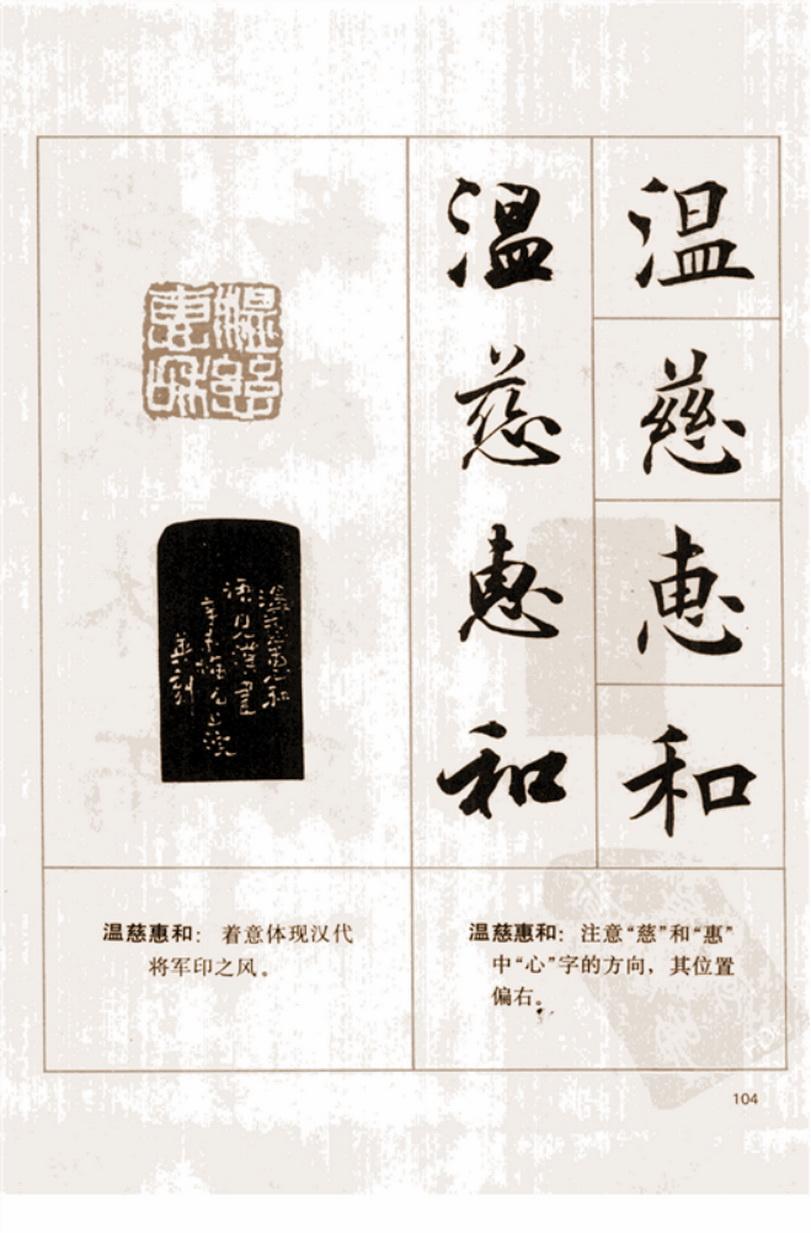 温
慈
惠
和
温
慈
惠
和
温慈
惠和
温慈惠和
语见汉书
辛未梅
英刻
温慈惠和：着意体现汉代
将军印之风。
温慈惠和：注意“慈”和“惠”
中“心”字的方向，其位置
偏右。
104